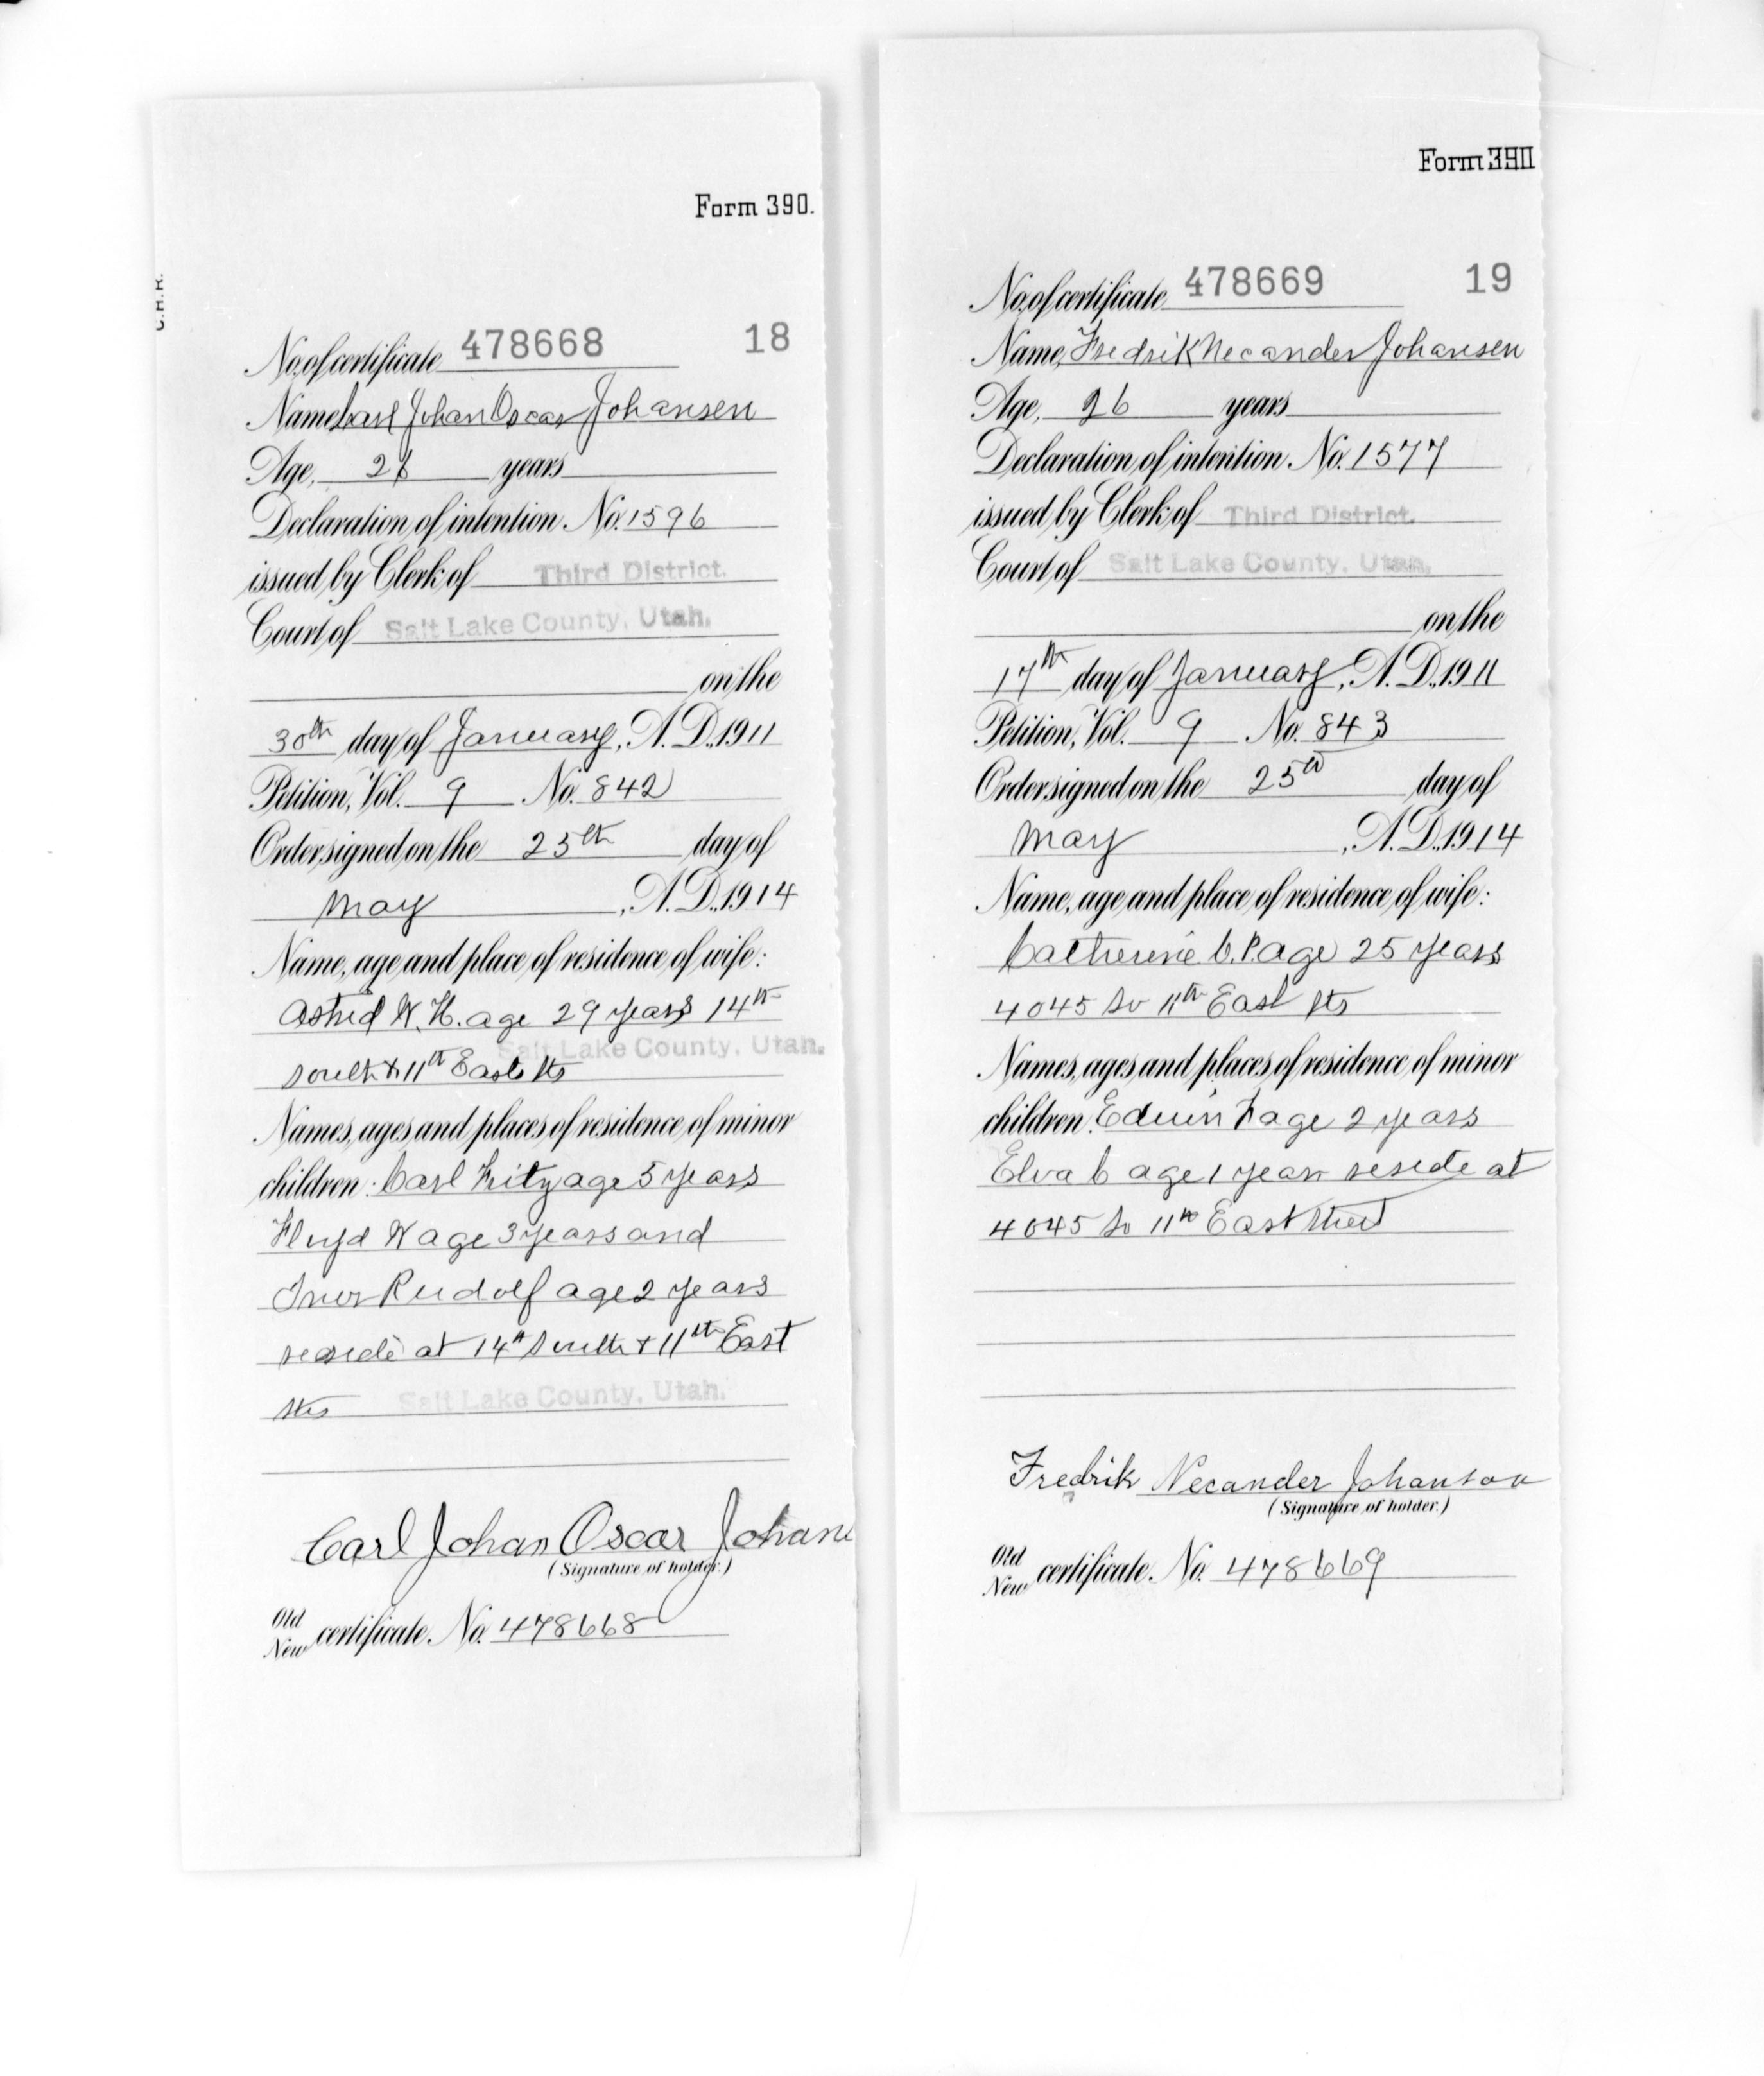 Form 390.
C.H.R.
No. of certificate 478668 18
Name, Carl Johan Oscar Johansen
Age, 26 years
Declaration of intention No. 1596
issued by Clerk of Third District.
Court of Salt Lake County, Utah.
on the
30th day of January, A.D. 1911
Petition, Vol. 9 No. 842
Order signed on the 25th day of
May, A.D. 1914
Name, age and place of residence of wife:
Astrid W. H. age 29 years 14th
Salt Lake County, Utah.
South & 11th East Sts
Names, ages and places of residence of minor
children: Carl Fritz age 5 years
Floyd W age 3 years and
Iver Rudolf age 2 years
reside at 14th South & 11th East
Sts Salt Lake County, Utah.
Carl Johan Oscar Johans
(Signature of holder.)
Old
New certificate No. 478668
Form 390
No. of certificate 478669 19
Name, Fredrik Necander Johansen
Age, 26 years
Declaration of intention No. 1577
issued by Clerk of Third District.
Court of Salt Lake County, Utah.
on the
17th day of January, A.D. 1911
Petition, Vol. 9 No. 843
Order signed on the 25th day of
May, A.D. 1914
Name, age and place of residence of wife:
Catherine C. P. age 25 years
4045 So 11th East Sts
Names, ages and places of residence of minor
children: Edwin F age 2 years
Elva C age 1 year reside at
4045 So 11th East Street
Fredrik Necander Johanson
(Signature of holder.)
Old
New certificate No. 478669